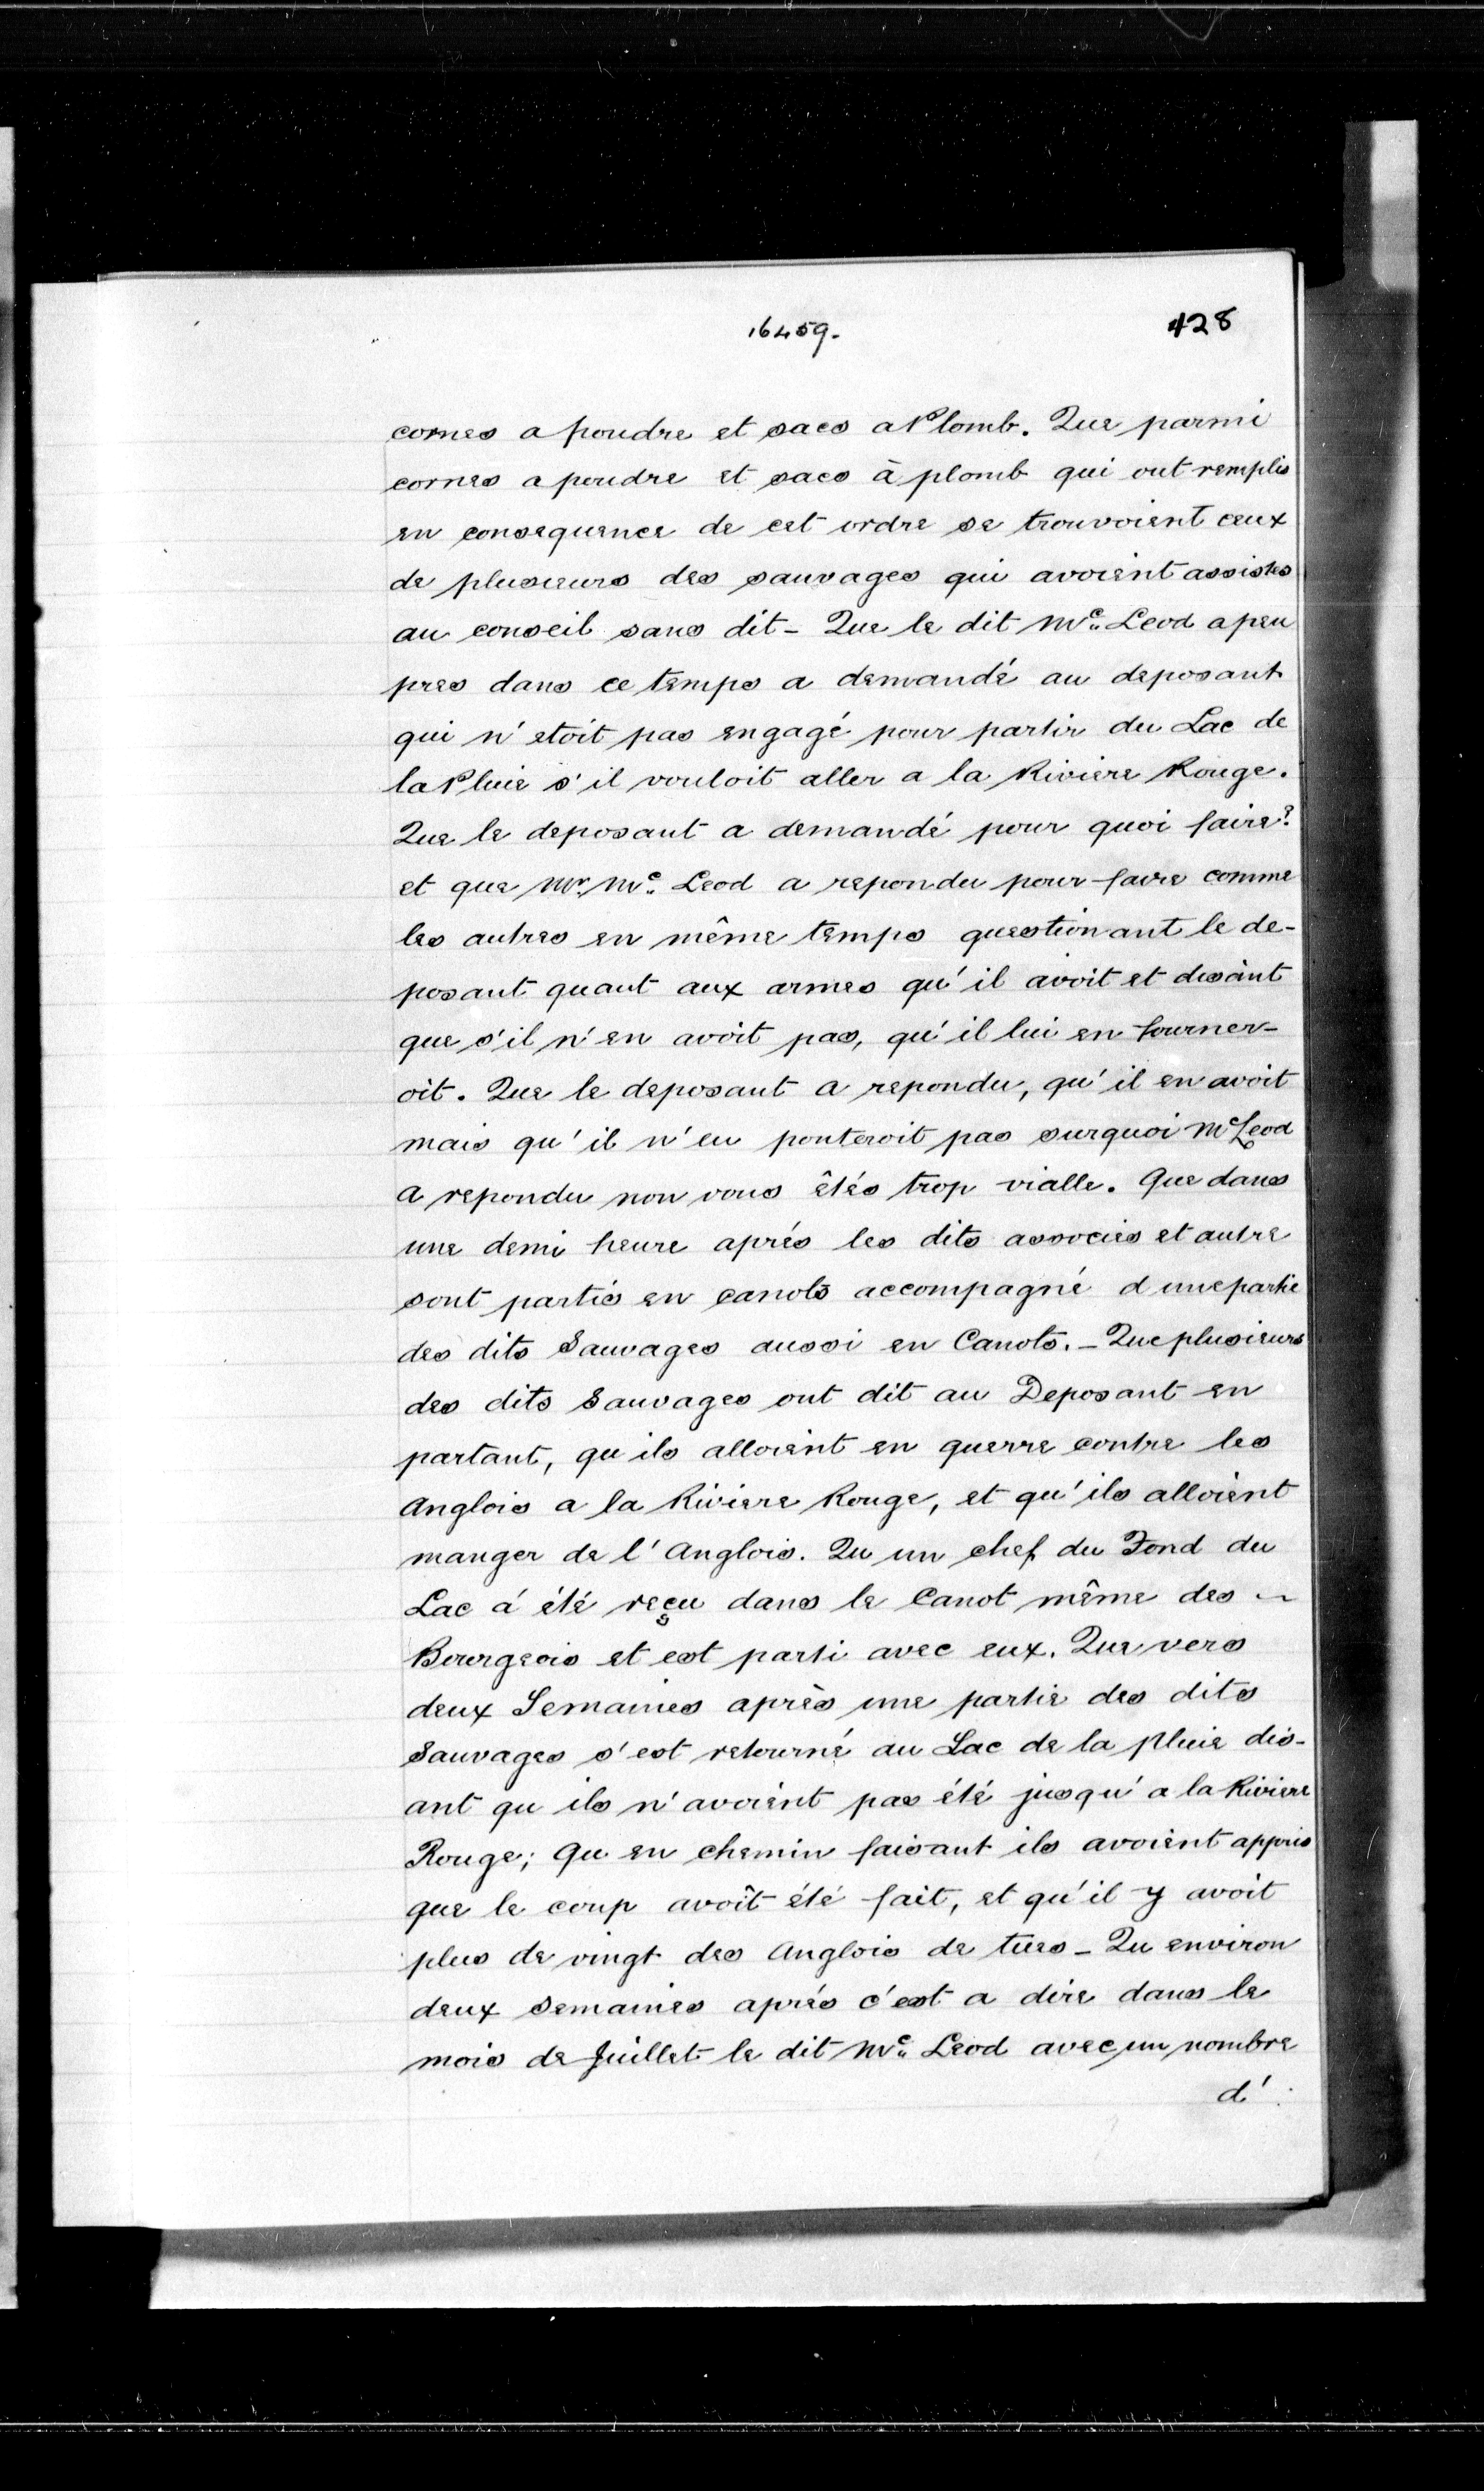 16459.
428
cornes a poudre et sacs a Plomb. Que parmi
cornes a poudre et sacs à plomb qui ont remplis
en consequence de cet ordre se trouvoient ceux
de plusieurs des sauvages qui avoient assistes
au conseil sans dit - Que le dit Mc. Leod a peu
pres dans ce temps a demandé au deposant
qui n'etoit pas engagé pour partir du Lac de
la Pluie s'il vouloit aller a la Riviere Rouge.
Que le deposant a demandé pour quoi faire?
et que Mr. Mc. Leod a repondu pour faire comme
les autres en même temps questionant le de-
posant quant aux armes qu'il avoit et disant
que s'il n'en avoit pas, qu'il lui en fourner-
oit. Que le deposant a repondu, qu'il en avoit
mais qu'il n'en ponteroit pas surquoi McLeod
a repondu non vous êtés trop vialle. Que dans
une demi heure aprés les dits associes et autre
sont partis en canots accompagné d une partie
des dits Sauvages aussi en Canots. - Que plusieurs
des dits Sauvages ont dit au Deposant en
partant, qu ils alloient en guerre contre les
Anglois a la Riviere Rouge, et qu'ils alloient
manger de l'Anglois. Qu un chef du Fond du
Lac á été reçu dans le Canot même des
Bourgeois et est parti avec eux. Que vers
deux Semaines après une partie des dits
Sauvages s'est retourné au Lac de la Pluie dis-
ant qu ils n'avoient pas été jusqu'a la Riviere
Rouge; Qu en chemin faisant ils avoient appris
que le coup avoit été fait, et qu'il y avoit
plus de vingt des Anglois de tues - Qu environ
deux Semaines aprés c'est a dire dans le
mois de Juillet le dit Mc. Leod avec un nombre
d'